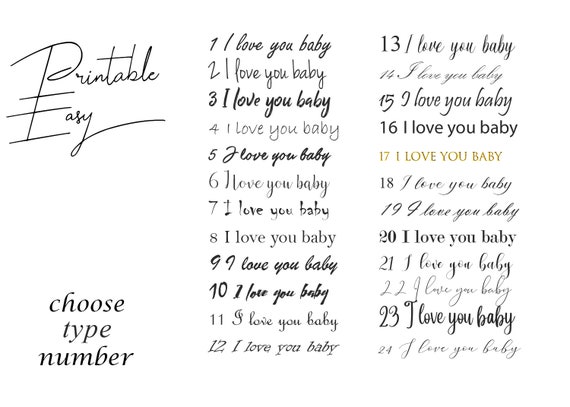 Printable
Easy
choose
type
number
1 I love you baby
2 I love you baby
3 I love you baby
4 I love you baby
5 I love you baby
6 I love you baby
7 I love you baby
8 I love you baby
9 I love you baby
10 I love you baby
11 I love you baby
12 I love you baby
13 I love you baby
14 I love you baby
15 I love you baby
16 I love you baby
17 I LOVE YOU BABY
18 I love you baby
19 I love you baby
20 I love you baby
21 I love you baby
22 I love you baby
23 I love you baby
24 I love you baby